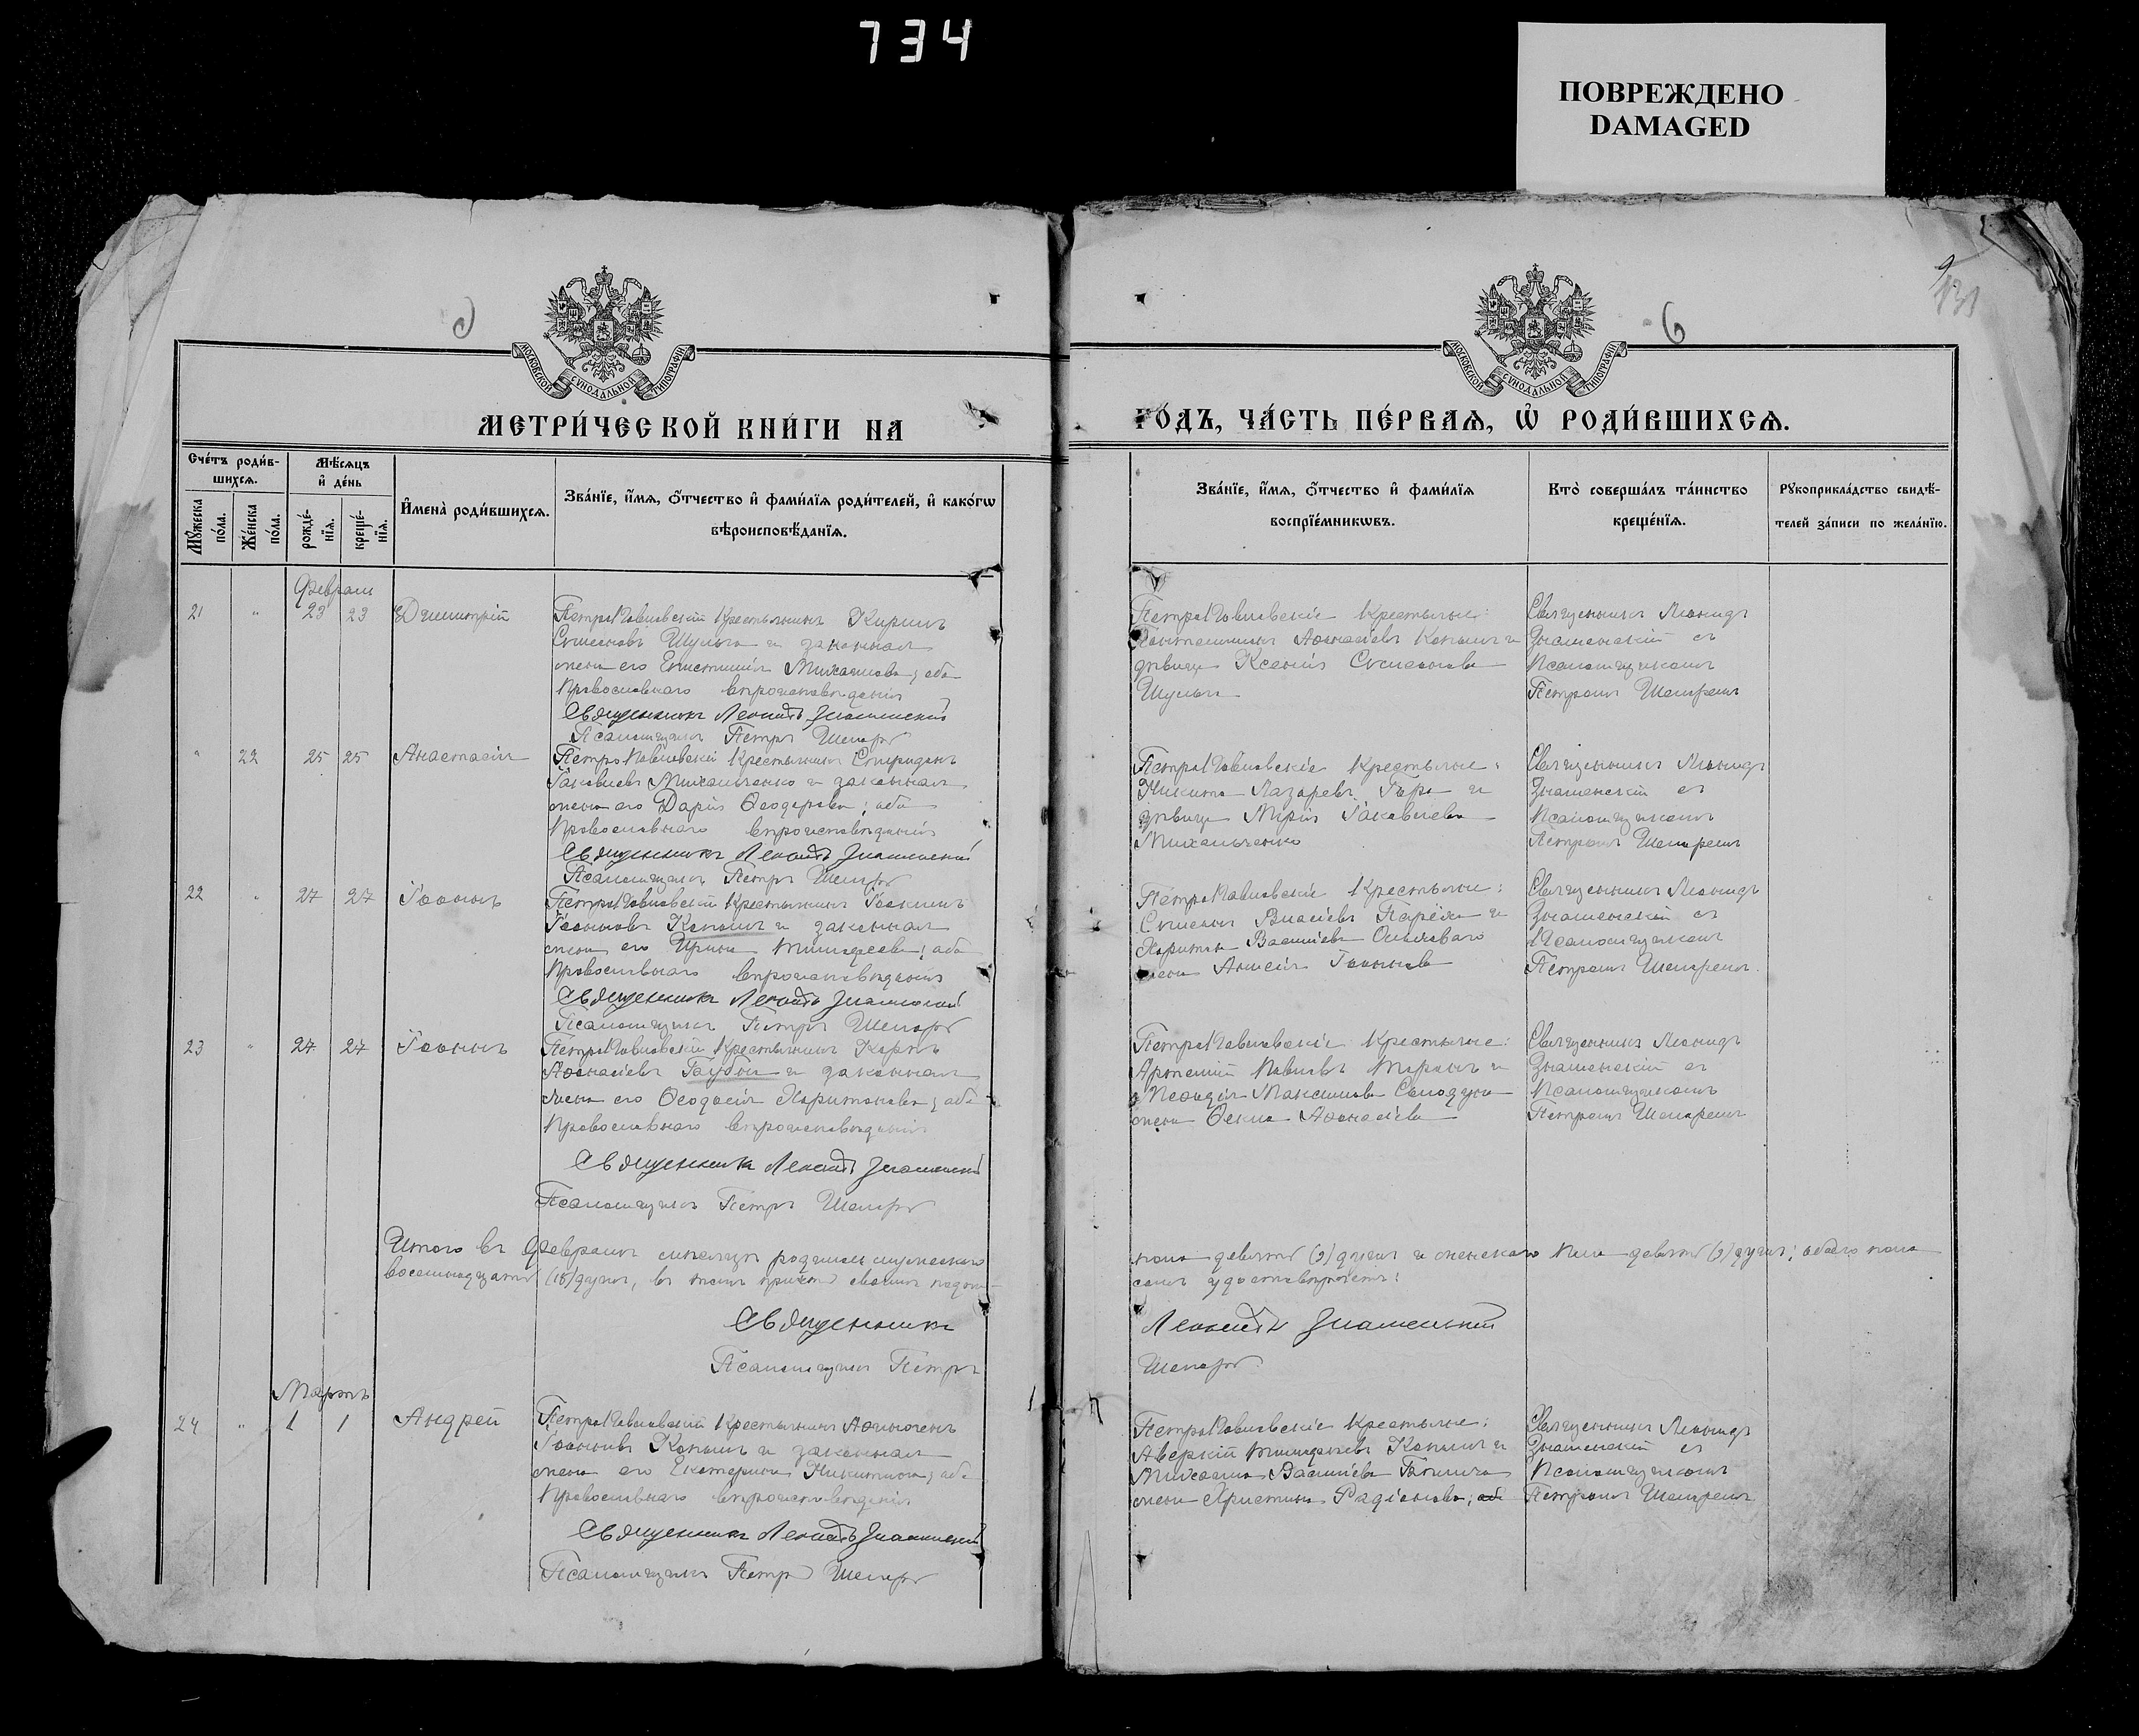 734
ПОВРЕЖДЕНО
DAMAGED
6
МОСКОВСКОЙ СУНОДАЛЬНОЙ ТИПОГРАФІИ
МОСКОВСКОЙ СУНОДАЛЬНОЙ ТИПОГРАФІИ
МЕТРИ́ЧЕСКОЙ КНИ́ГИ НА
ГО́ДЪ, ЧА́СТЬ ПЕ́РВАѦ, Ѡ҆ РОДИ́ВШИХСѦ.
Сче́тъ роди́в-
шихсѧ.
Мꙋжеска по́ла.
Же́нска по́ла.
Мѣ́сѧцъ
и҆ де́нь
рожде́-
нїѧ.
креще́-
нїѧ.
И҆мена̀ роди́вшихсѧ.
Зва́нїе, и҆́мѧ, ѻ҆́тчество и҆ фами́лїѧ роди́телей, и҆ како́гѡ
вѣроисповѣ́данїѧ.
Зва́нїе, и҆́мѧ, ѻ҆́тчество и҆ фами́лїѧ
воспрїе́мникѡвъ.
Кто̀ соверша́лъ та́инство
креще́нїѧ.
Рꙋкоприкла́дство свидѣ́-
телей за́писи по жела́нїю.
Февраль
21 " 23 23 Димитрій
ПетроПавловскій крестьянинъ Кириллъ
Сѵмеоновъ Шульга и законная
жена его Михаилова, оба
Православнаго вѣроисповѣданія
Священникъ Леонидъ Знаменскій
Псаломщикъ Петръ Шепаревъ
ПетроПавловскіе крестьяне:
Пантелеимонъ Аѳанасіевъ Копылъ и
дѣвица Ксенія Сѵмеонова
Шульга
Священникъ Леонидъ
Знаменскій съ
Псаломщикомъ
Петромъ Шепаревымъ
" 22 25 25 Анастасія
ПетроПавловскій крестьянинъ Спиридонъ
Іаковлевъ Михальченко и законная
жена его Дарія Ѳеодорова; оба
Православнаго вѣроисповѣданія
Священникъ Леонидъ Знаменскій
Псаломщикъ Петръ Шепаревъ
ПетроПавловскіе крестьяне:
Никита Лазаревъ и
дѣвица Марія Іаковлева
Михальченко
Священникъ Леонидъ
Знаменскій съ
Псаломщикомъ
Петромъ Шепаревымъ
22 " 27 27 Іоаннъ
ПетроПавловскій крестьянинъ Іоакимъ
Іоанновъ Копылъ и законная
жена его Ирина Тимоѳеева; оба
Православнаго вѣроисповѣданія
Священникъ Леонидъ Знаменскій
Псаломщикъ Петръ Шепаревъ
ПетроПавловскіе крестьяне:
Сѵмеонъ Власіевъ и
Харитона Василіева
жена Іоаннова
Священникъ Леонидъ
Знаменскій съ
Псаломщикомъ
Петромъ Шепаревымъ
23 " 27 27 Іоаннъ
ПетроПавловскій крестьянинъ Карпъ
Аѳанасіевъ и законная
жена его Ѳеодосія Харитонова; оба
Православнаго вѣроисповѣданія
Священникъ Леонидъ Знаменскій
Псаломщикъ Петръ Шепаревъ
ПетроПавловскіе крестьяне:
Арпсеній Павловъ Таранъ и
Максимова
жена Аѳанасіева
Священникъ Леонидъ
Знаменскій съ
Псаломщикомъ
Петромъ Шепаревымъ
Итого въ Февралѣ мѣсяцѣ родилось мужескаго
пола девять (9) душъ и женскаго пола девять (9) душъ; обоего пола
восемнадцать (18) душъ, въ томъ причтъ своимъ подпи-
сомъ удостовѣряетъ:
Священникъ
Леонидъ Знаменскій
Псаломщикъ Петръ
Шепаревъ
Мартъ
24 " 1 1 Андрей
ПетроПавловскій крестьянинъ
Іоанновъ Копылъ и законная
жена его Екатерина Никитина; оба
Православнаго вѣроисповѣданія
Священникъ Леонидъ Знаменскій
Псаломщикъ Петръ Шепаревъ
ПетроПавловскіе крестьяне:
Аверкій Тимоѳеевъ Копылъ и
Михаила Василіева
жена Христина Радіонова, оба
Священникъ Леонидъ
Знаменскій съ
Псаломщикомъ
Петромъ Шепаревымъ